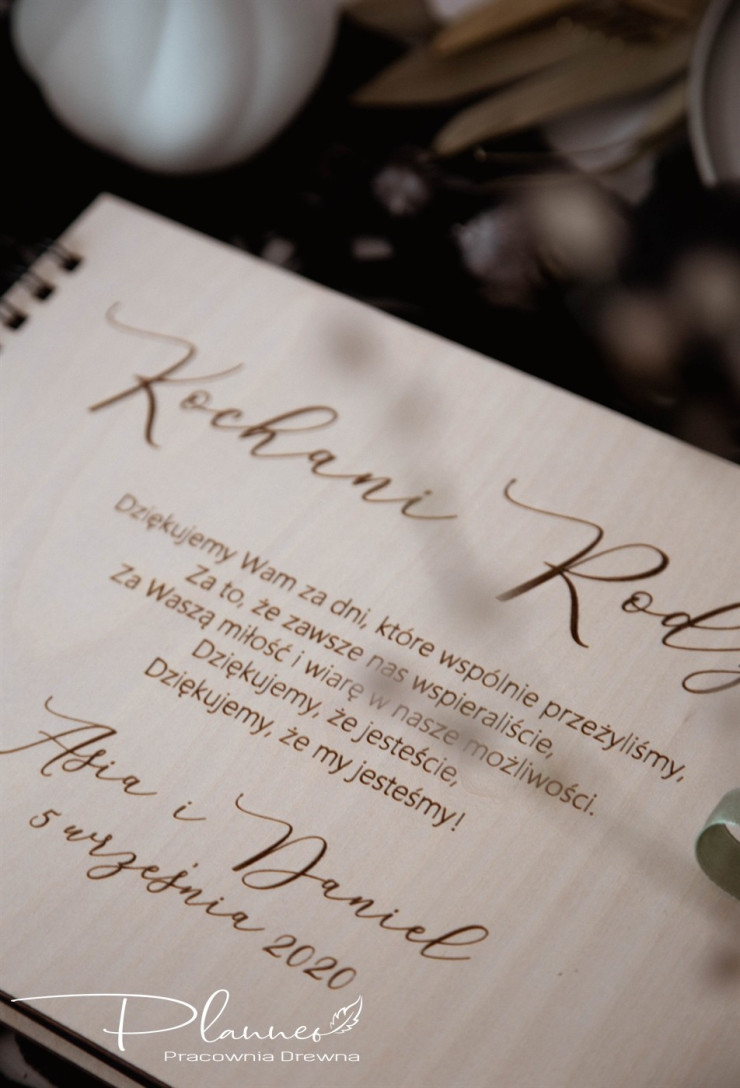 Kochani Rodz
Dziękujemy Wam za dni, które wspólnie przeżyliśmy,
Za to, że zawsze nas wspieraliście,
Za Waszą miłość i wiarę w nasze możliwości.
Dziękujemy, że jesteście,
Dziękujemy, że my jesteśmy!
Asia i Daniel
5 września 2020
Planneo
Pracownia Drewna